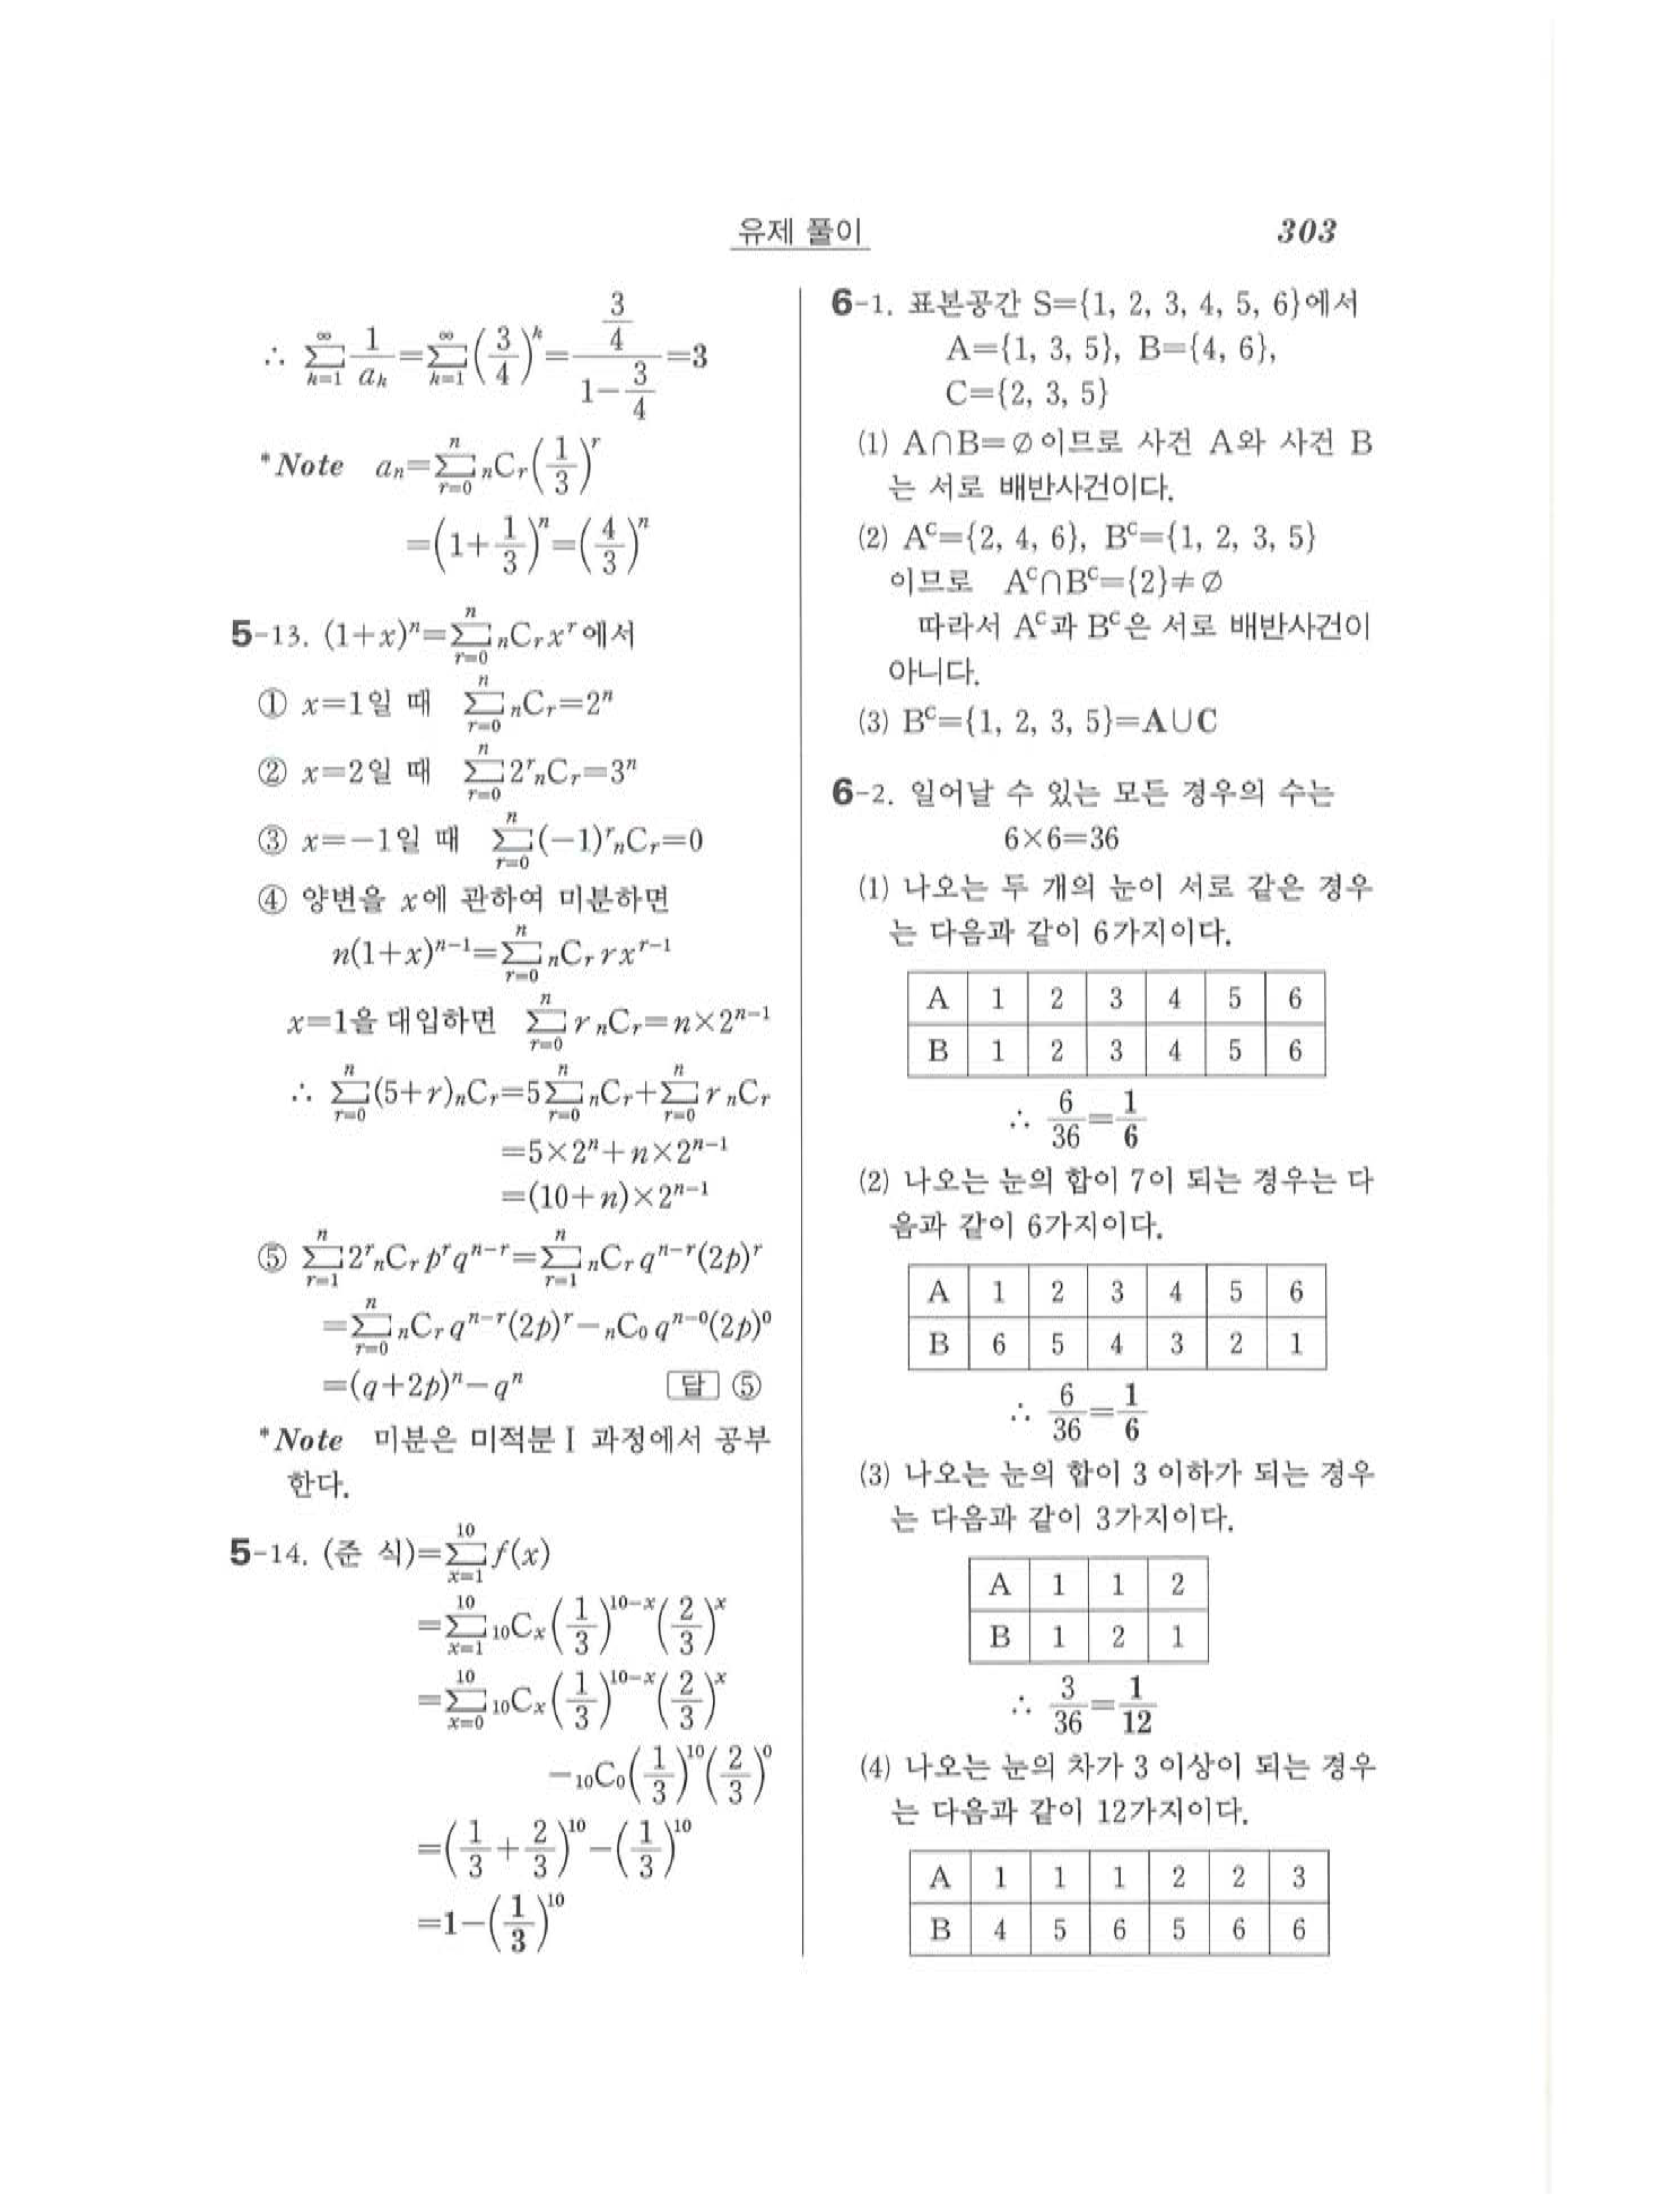 유제 풀이 303
∴ $\sum_{k=1}^{\infty}\frac{1}{a_k}=\sum_{k=1}^{\infty}\left(\frac{3}{4}\right)^k=\frac{\frac{3}{4}}{1-\frac{3}{4}}=3$
*Note $a_n=\sum_{r=0}^{n}{}_nC_r\left(\frac{1}{3}\right)^r$
$=\left(1+\frac{1}{3}\right)^n=\left(\frac{4}{3}\right)^n$
5-13. $(1+x)^n=\sum_{r=0}^{n}{}_nC_r x^r$에서
① $x=1$일 때 $\sum_{r=0}^{n}{}_nC_r=2^n$
② $x=2$일 때 $\sum_{r=0}^{n}2^r{}_nC_r=3^n$
③ $x=-1$일 때 $\sum_{r=0}^{n}(-1)^r{}_nC_r=0$
④ 양변을 $x$에 관하여 미분하면
$n(1+x)^{n-1}=\sum_{r=0}^{n}{}_nC_r\,rx^{r-1}$
$x=1$을 대입하면 $\sum_{r=0}^{n}r\,{}_nC_r=n\times2^{n-1}$
∴ $\sum_{r=0}^{n}(5+r){}_nC_r=5\sum_{r=0}^{n}{}_nC_r+\sum_{r=0}^{n}r\,{}_nC_r$
$=5\times2^n+n\times2^{n-1}$
$=(10+n)\times2^{n-1}$
⑤ $\sum_{r=1}^{n}2^r{}_nC_r\,p^rq^{n-r}=\sum_{r=1}^{n}{}_nC_r\,q^{n-r}(2p)^r$
$=\sum_{r=0}^{n}{}_nC_r\,q^{n-r}(2p)^r-{}_nC_0\,q^{n-0}(2p)^0$
$=(q+2p)^n-q^n$ 답 ⑤
*Note 미분은 미적분Ⅰ 과정에서 공부
한다.
5-14. (준 식)$=\sum_{x=1}^{10}f(x)$
$=\sum_{x=1}^{10}{}_{10}C_x\left(\frac{1}{3}\right)^{10-x}\left(\frac{2}{3}\right)^x$
$=\sum_{x=0}^{10}{}_{10}C_x\left(\frac{1}{3}\right)^{10-x}\left(\frac{2}{3}\right)^x$
$-{}_{10}C_0\left(\frac{1}{3}\right)^{10}\left(\frac{2}{3}\right)^0$
$=\left(\frac{1}{3}+\frac{2}{3}\right)^{10}-\left(\frac{1}{3}\right)^{10}$
$=1-\left(\frac{1}{3}\right)^{10}$
6-1. 표본공간 S={1, 2, 3, 4, 5, 6}에서
A={1, 3, 5}, B={4, 6},
C={2, 3, 5}
(1) A∩B=∅이므로 사건 A와 사건 B
는 서로 배반사건이다.
(2) $A^C$={2, 4, 6}, $B^C$={1, 2, 3, 5}
이므로 $A^C∩B^C$={2}≠∅
따라서 $A^C$과 $B^C$은 서로 배반사건이
아니다.
(3) $B^C$={1, 2, 3, 5}=A∪C
6-2. 일어날 수 있는 모든 경우의 수는
6×6=36
(1) 나오는 두 개의 눈이 서로 같은 경우
는 다음과 같이 6가지이다.
A 1 2 3 4 5 6
B 1 2 3 4 5 6
∴ $\frac{6}{36}=\frac{1}{6}$
(2) 나오는 눈의 합이 7이 되는 경우는 다
음과 같이 6가지이다.
A 1 2 3 4 5 6
B 6 5 4 3 2 1
∴ $\frac{6}{36}=\frac{1}{6}$
(3) 나오는 눈의 합이 3 이하가 되는 경우
는 다음과 같이 3가지이다.
A 1 1 2
B 1 2 1
∴ $\frac{3}{36}=\frac{1}{12}$
(4) 나오는 눈의 차가 3 이상이 되는 경우
는 다음과 같이 12가지이다.
A 1 1 1 2 2 3
B 4 5 6 5 6 6